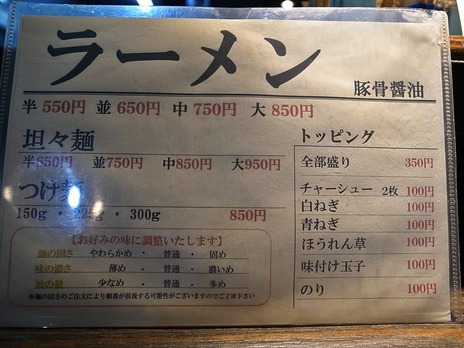 ラーメン
豚骨醤油
半 550円 並 650円 中 750円 大 850円
坦々麺
半650円 並750円 中850円 大950円
つけ麺
150g ・ 225g ・ 300g 850円
【お好みの味に調整いたします】
麺の固さ やわらかめ ・ 普通 ・ 固め
味の濃さ 薄め ・ 普通 ・ 濃いめ
油の量 少なめ ・ 普通 ・ 多め
※麺の固さのご注文により順番が前後する可能性がございますのでご了承下さい
トッピング
全部盛り 350円
チャーシュー 2枚 100円
白ねぎ 100円
青ねぎ 100円
ほうれん草 100円
味付け玉子 100円
のり 100円